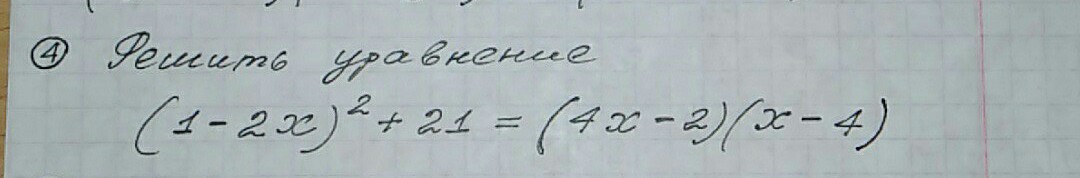 ④ Решить уравнение
(1-2x)²+21=(4x-2)(x-4)